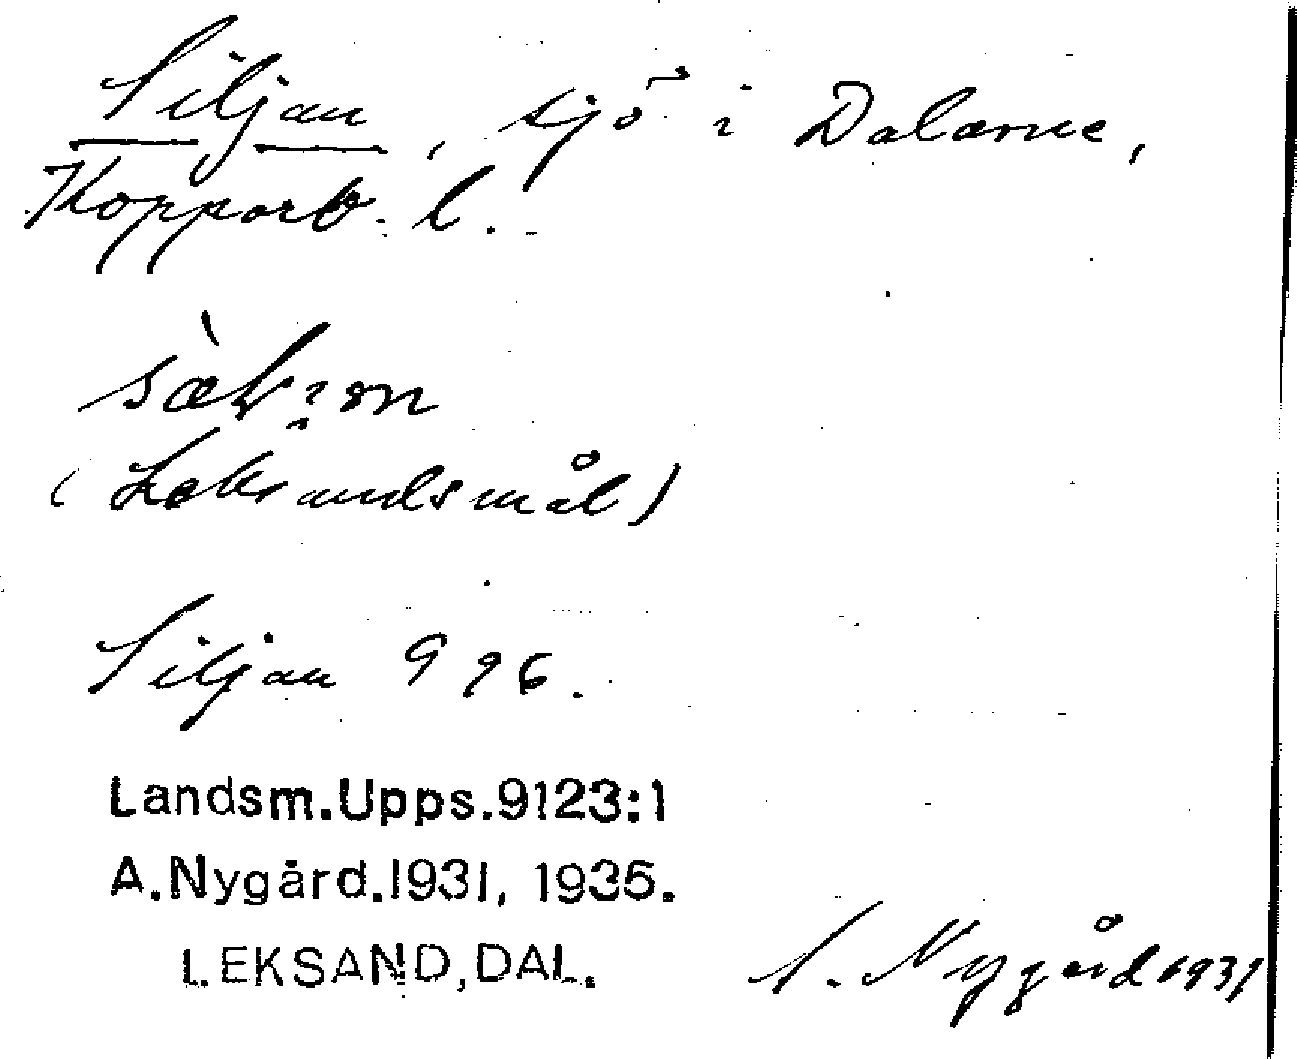 Siljan, sjö i Dalarne,
Kopparb. l.
(Leksandsmål)
Siljan 996.
Landsm.Upps.9123:1
A.Nygård.1931, 1935.
LEKSAND, DAL.
A. Nygård 1931